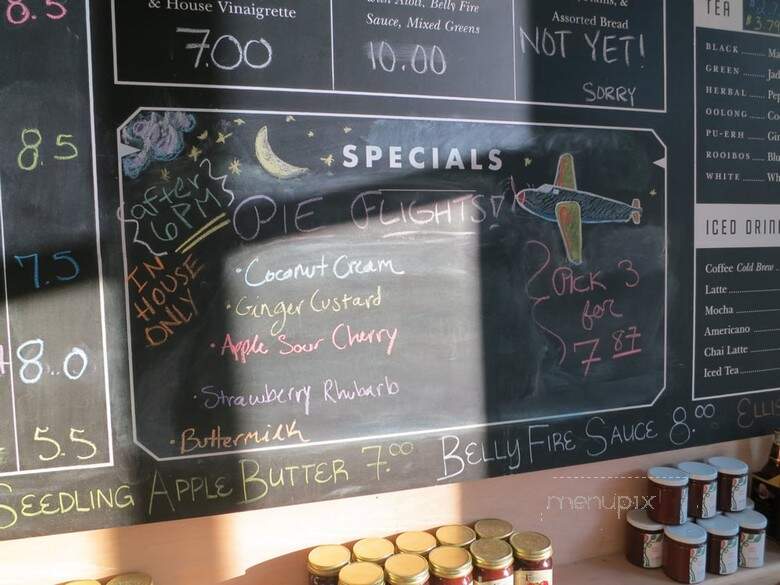 8.5
8.5
7.5
8.0
5.5
& House Vinaigrette
7.00
with Aioli, Belly Fire
Sauce, Mixed Greens
10.00
Assorted Bread
NOT YET!
SORRY
SPECIALS
after
6PM
IN
HOUSE
ONLY
PIE FLIGHTS!
• Coconut Cream
• Ginger Custard
• Apple Sour Cherry
• Strawberry Rhubarb
• Buttermilk
PICK 3
for
7 87
SEEDLING APPLE BUTTER 7.00
BELLY FIRE SAUCE 8.00
TEA
BLACK
GREEN
HERBAL
OOLONG
PU-ERH
ROOIBOS
WHITE
ICED DRIN
Coffee Cold Brew
Latte
Mocha
Americano
Chai Latte
Iced Tea
menupix